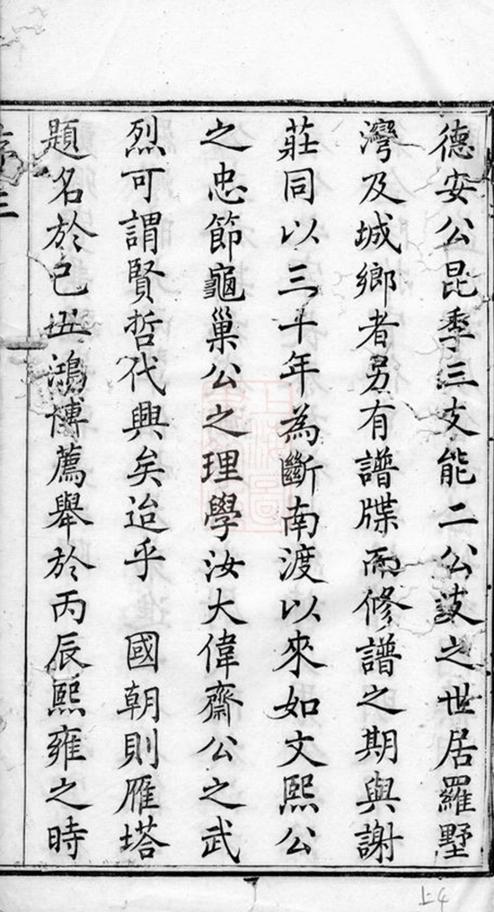 德安公昆季三支能二公支之世居羅墅
灣及城鄉者另有譜牒而修譜之期與謝
莊同以三十年為斷南渡以來如文熙公
之忠節龜巢公之理學汝大偉齋公之武
烈可謂賢哲代興矣迨乎　國朝則雁塔
題名於己丑鴻博薦舉於丙辰熙雍之時